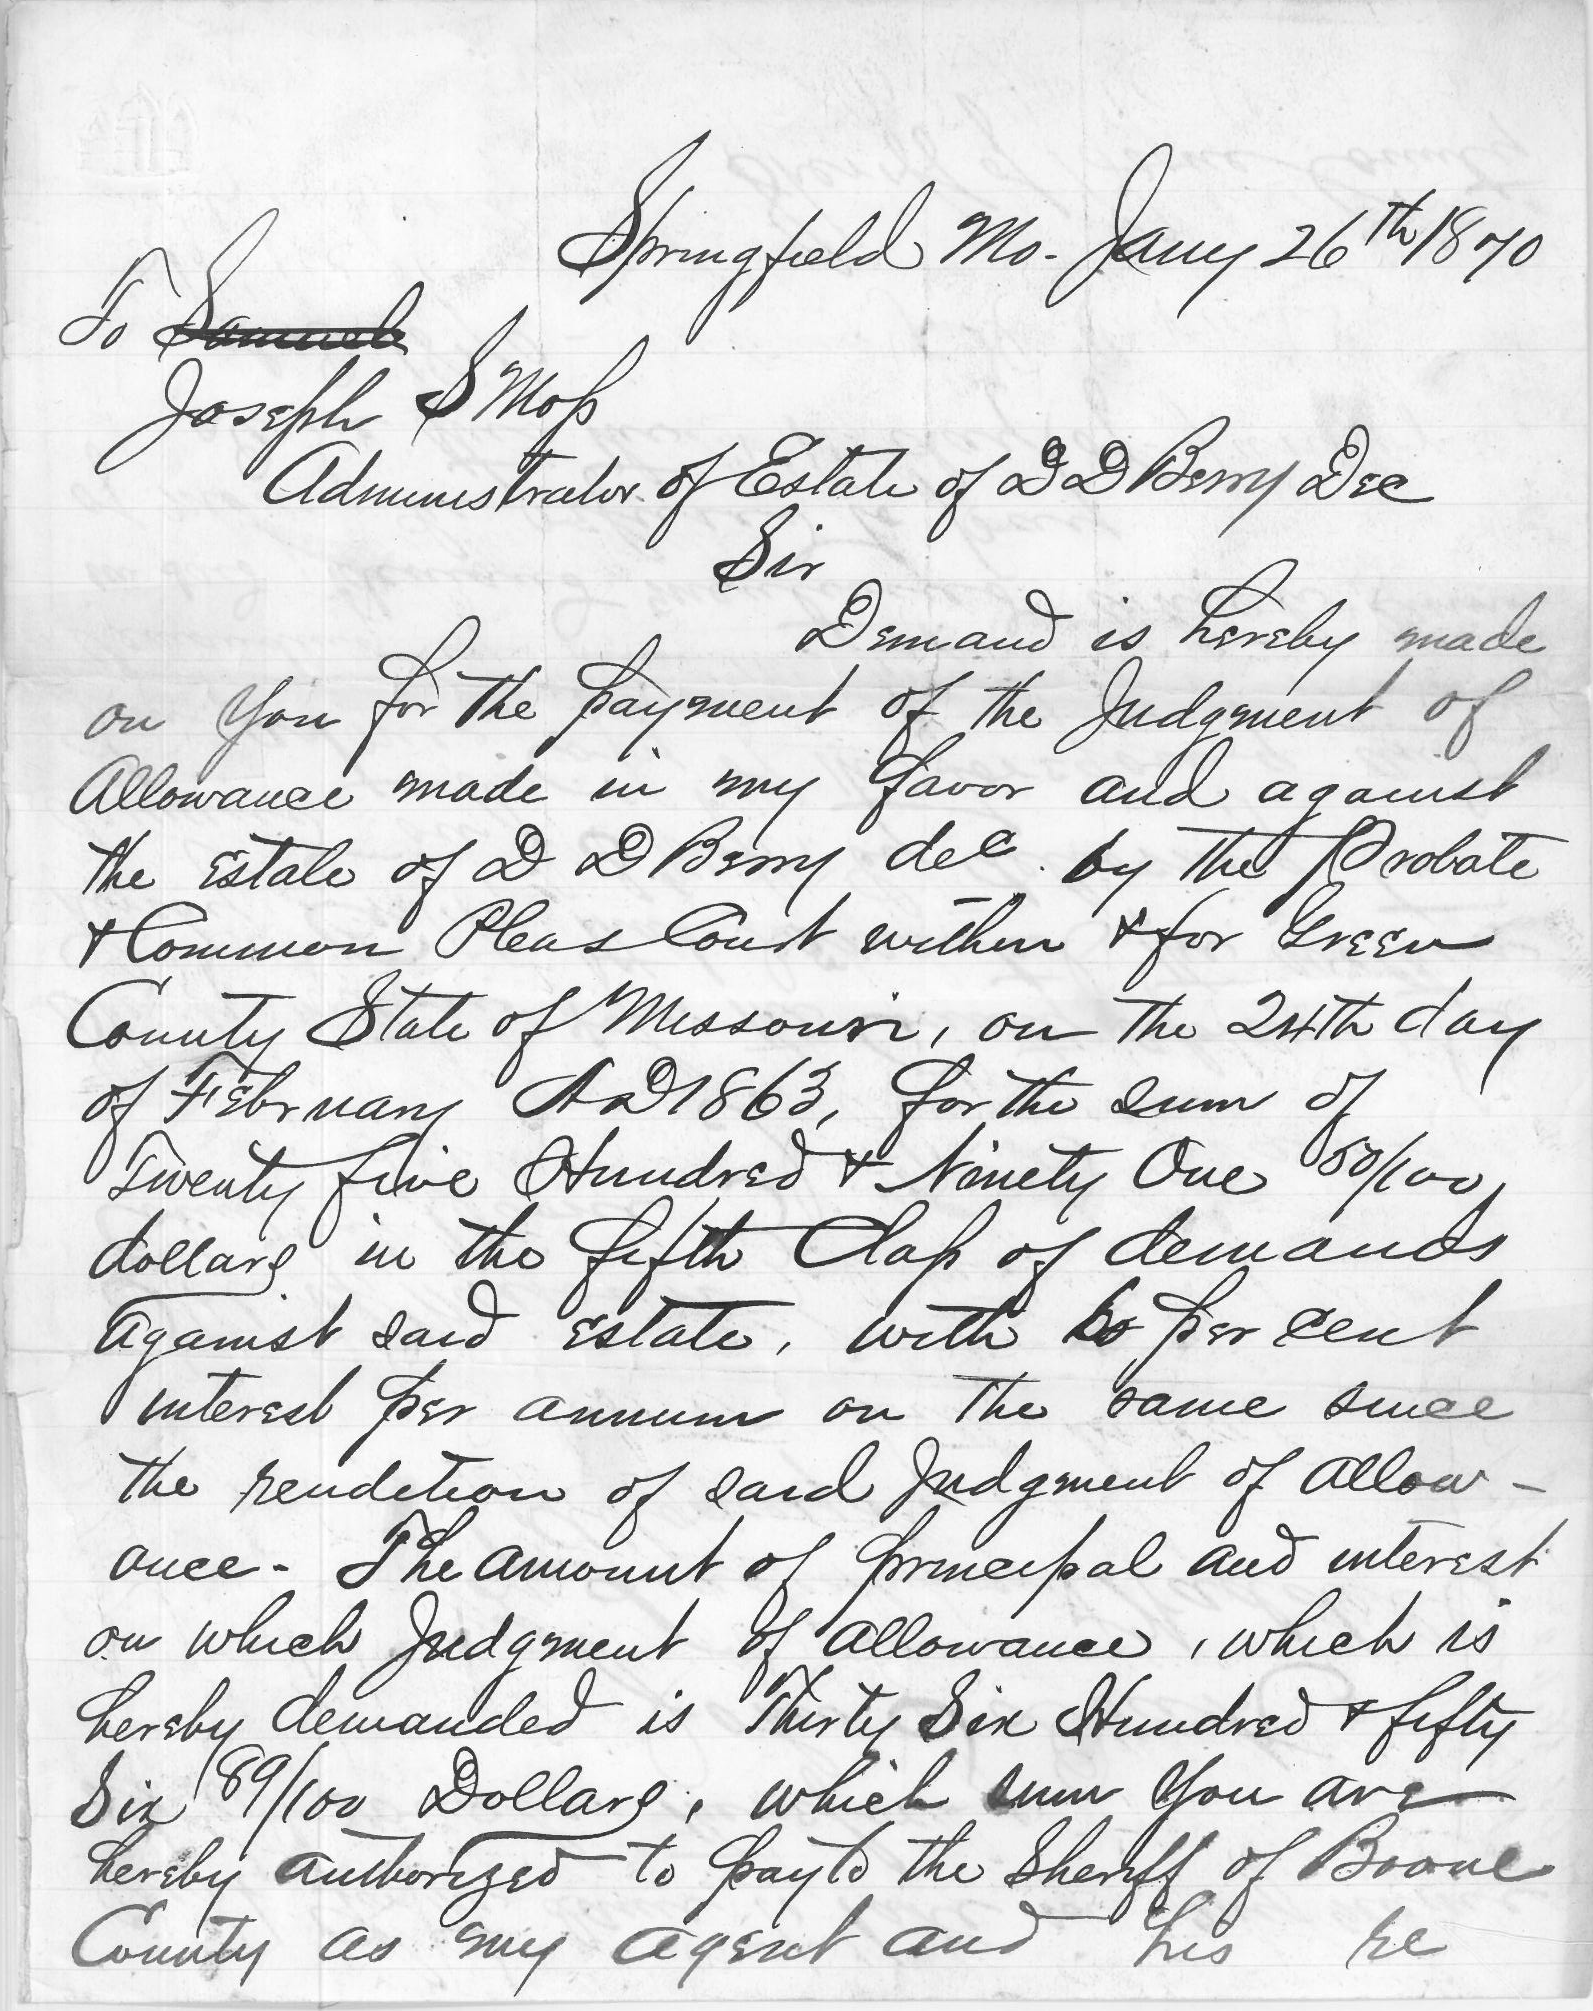 Springfield Mo. Jany 26th 1870
To Samuel
Joseph S Moss
Administrator of Estate of D D Berry Dec
Sir
Demand is hereby made
on you for the payment of the Judgment of
Allowance made in my favor and against
the estate of D D Berry decd. by the Probate
& Common Pleas Court within & for Green
County State of Missouri, on the 24th day
of February AD 1863, for the sum of
Twenty five Hundred & Ninety One 50/100
dollars in the fifth Class of demands
against said estate, with per cent
interest per annum on the same since
the rendition of said Judgment of allow-
ance - The amount of principal and interest
on which Judgment of allowance, which is
hereby demanded is Thirty Six Hundred & fifty
Six 89/100 Dollars, which sum you are
hereby authorized to pay to the Sheriff of Boone
County as my agent and his re